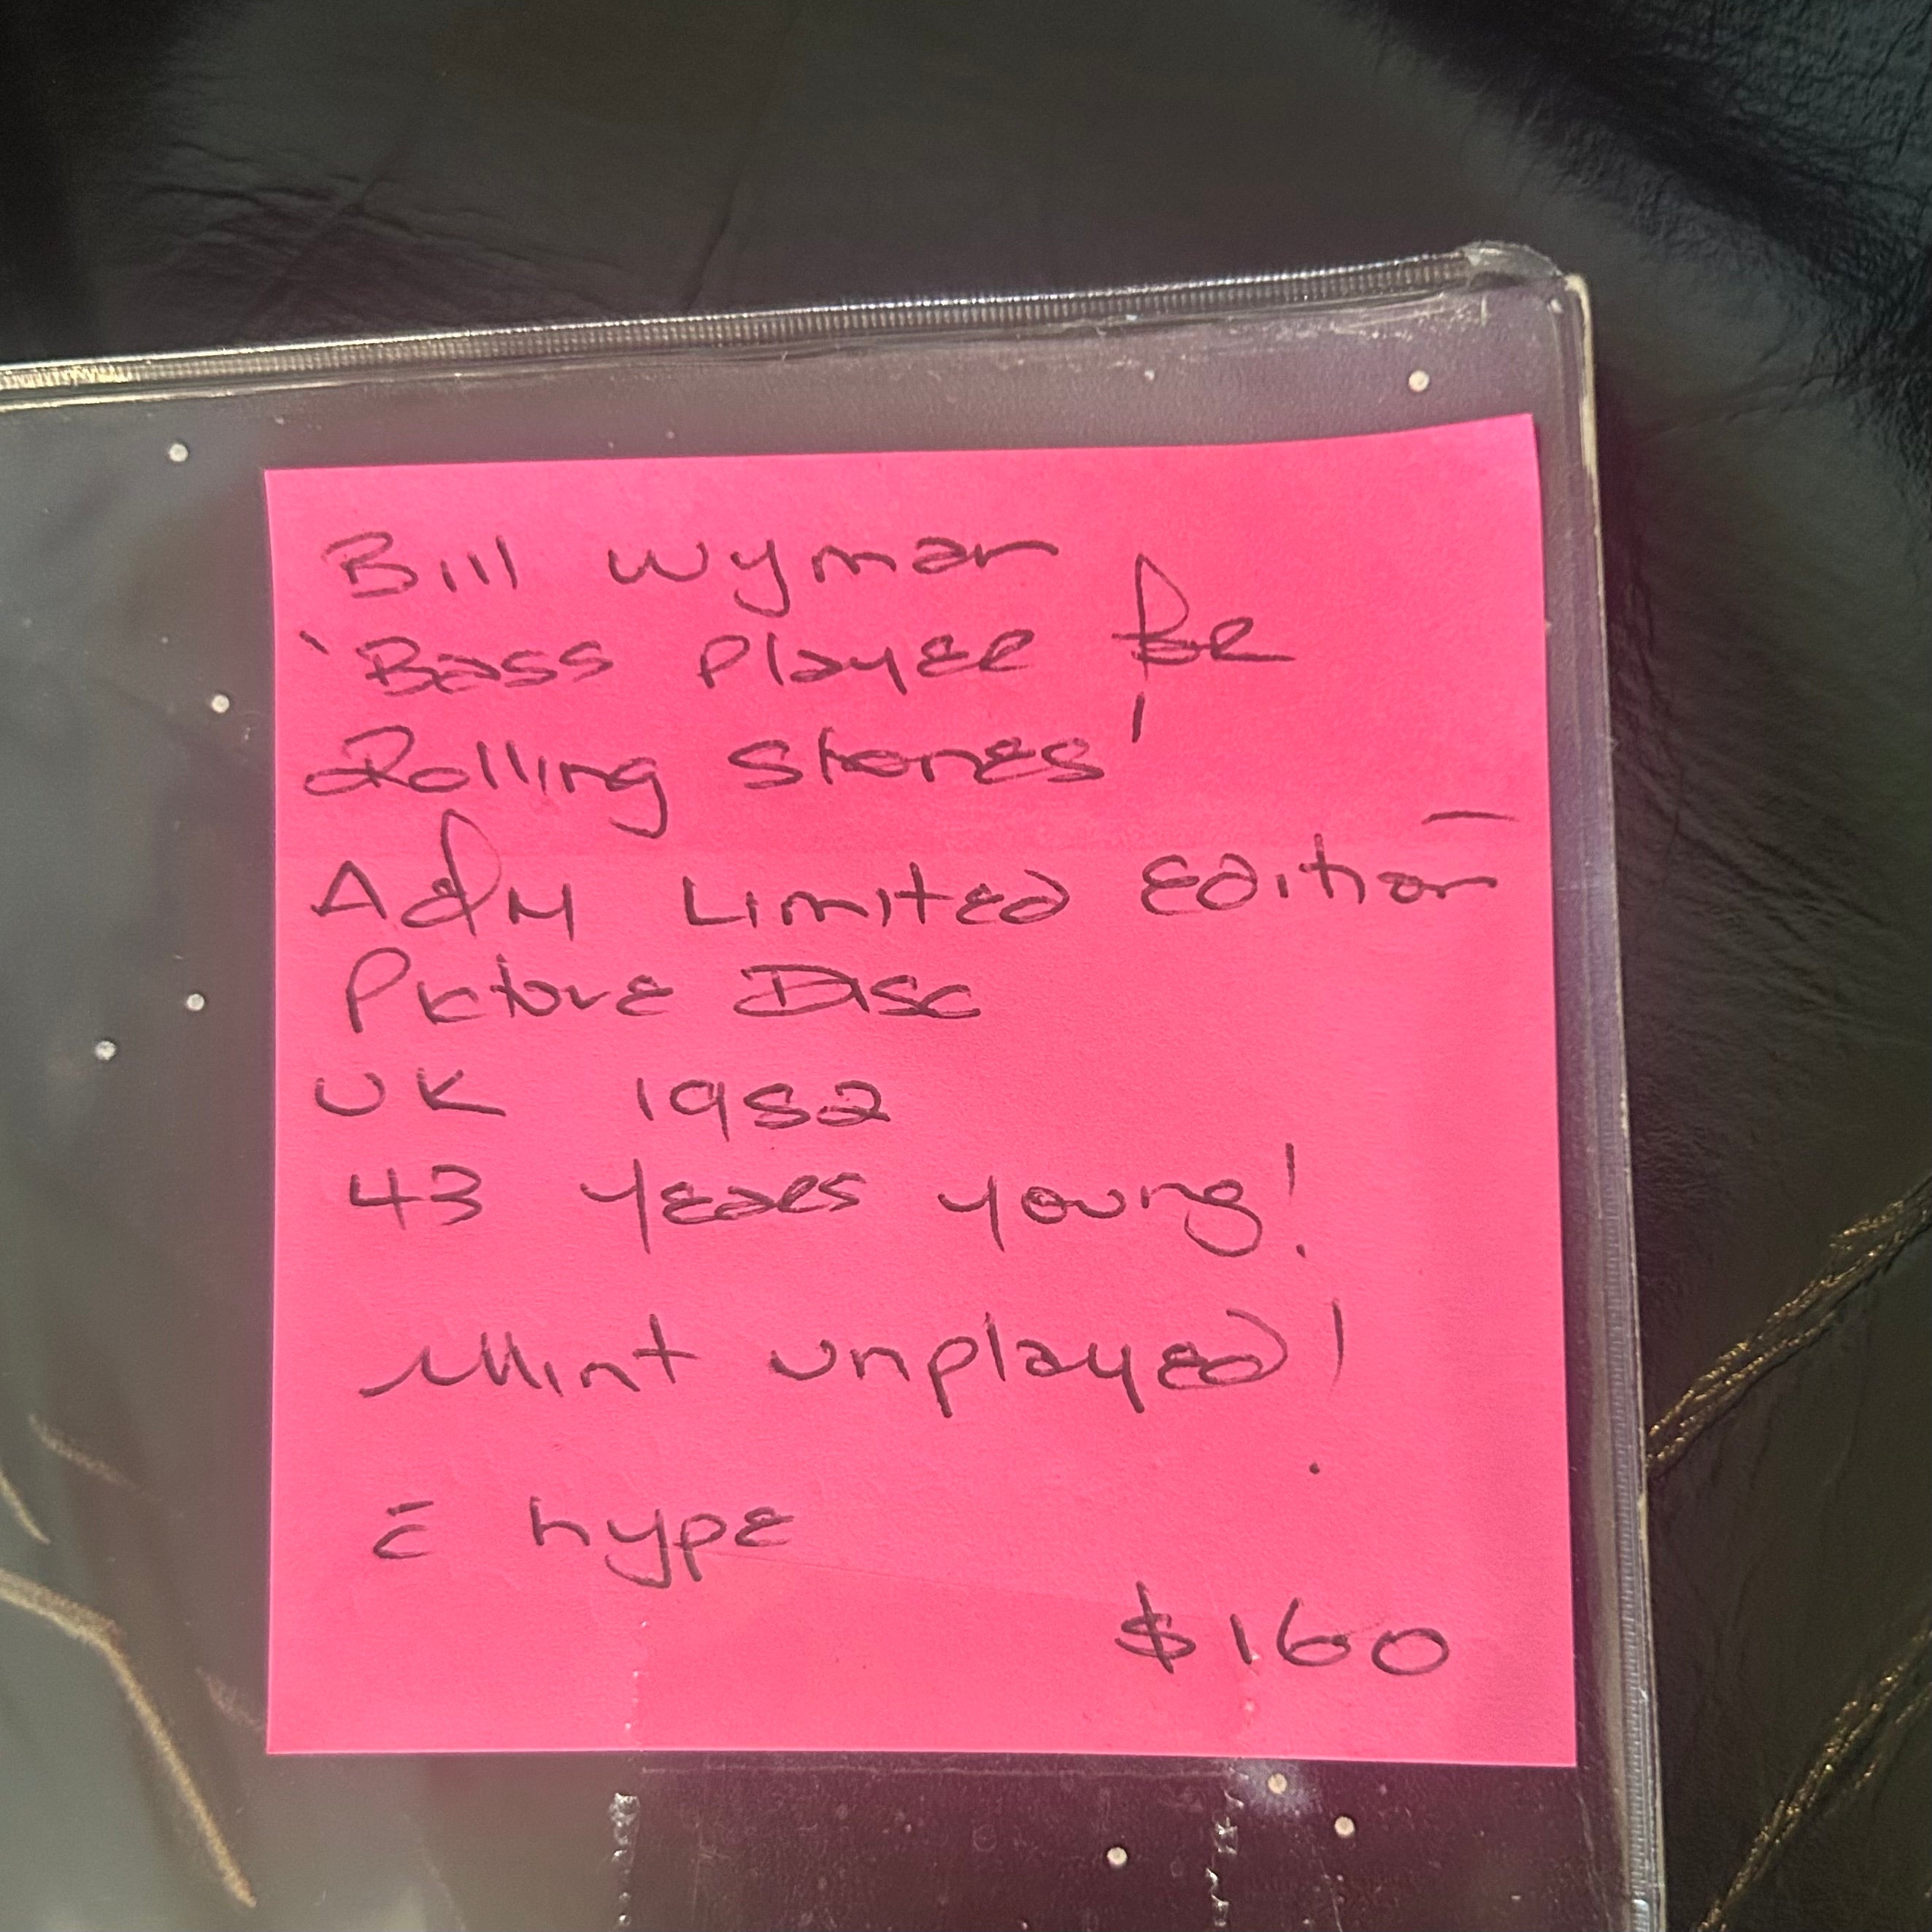 Bill Wyman
'Bass Player for
Rolling Stones'
A&M Limited Edition
Picture Disc
UK 1982
43 years young!
Mint unplayed!
c̄ hype
$160